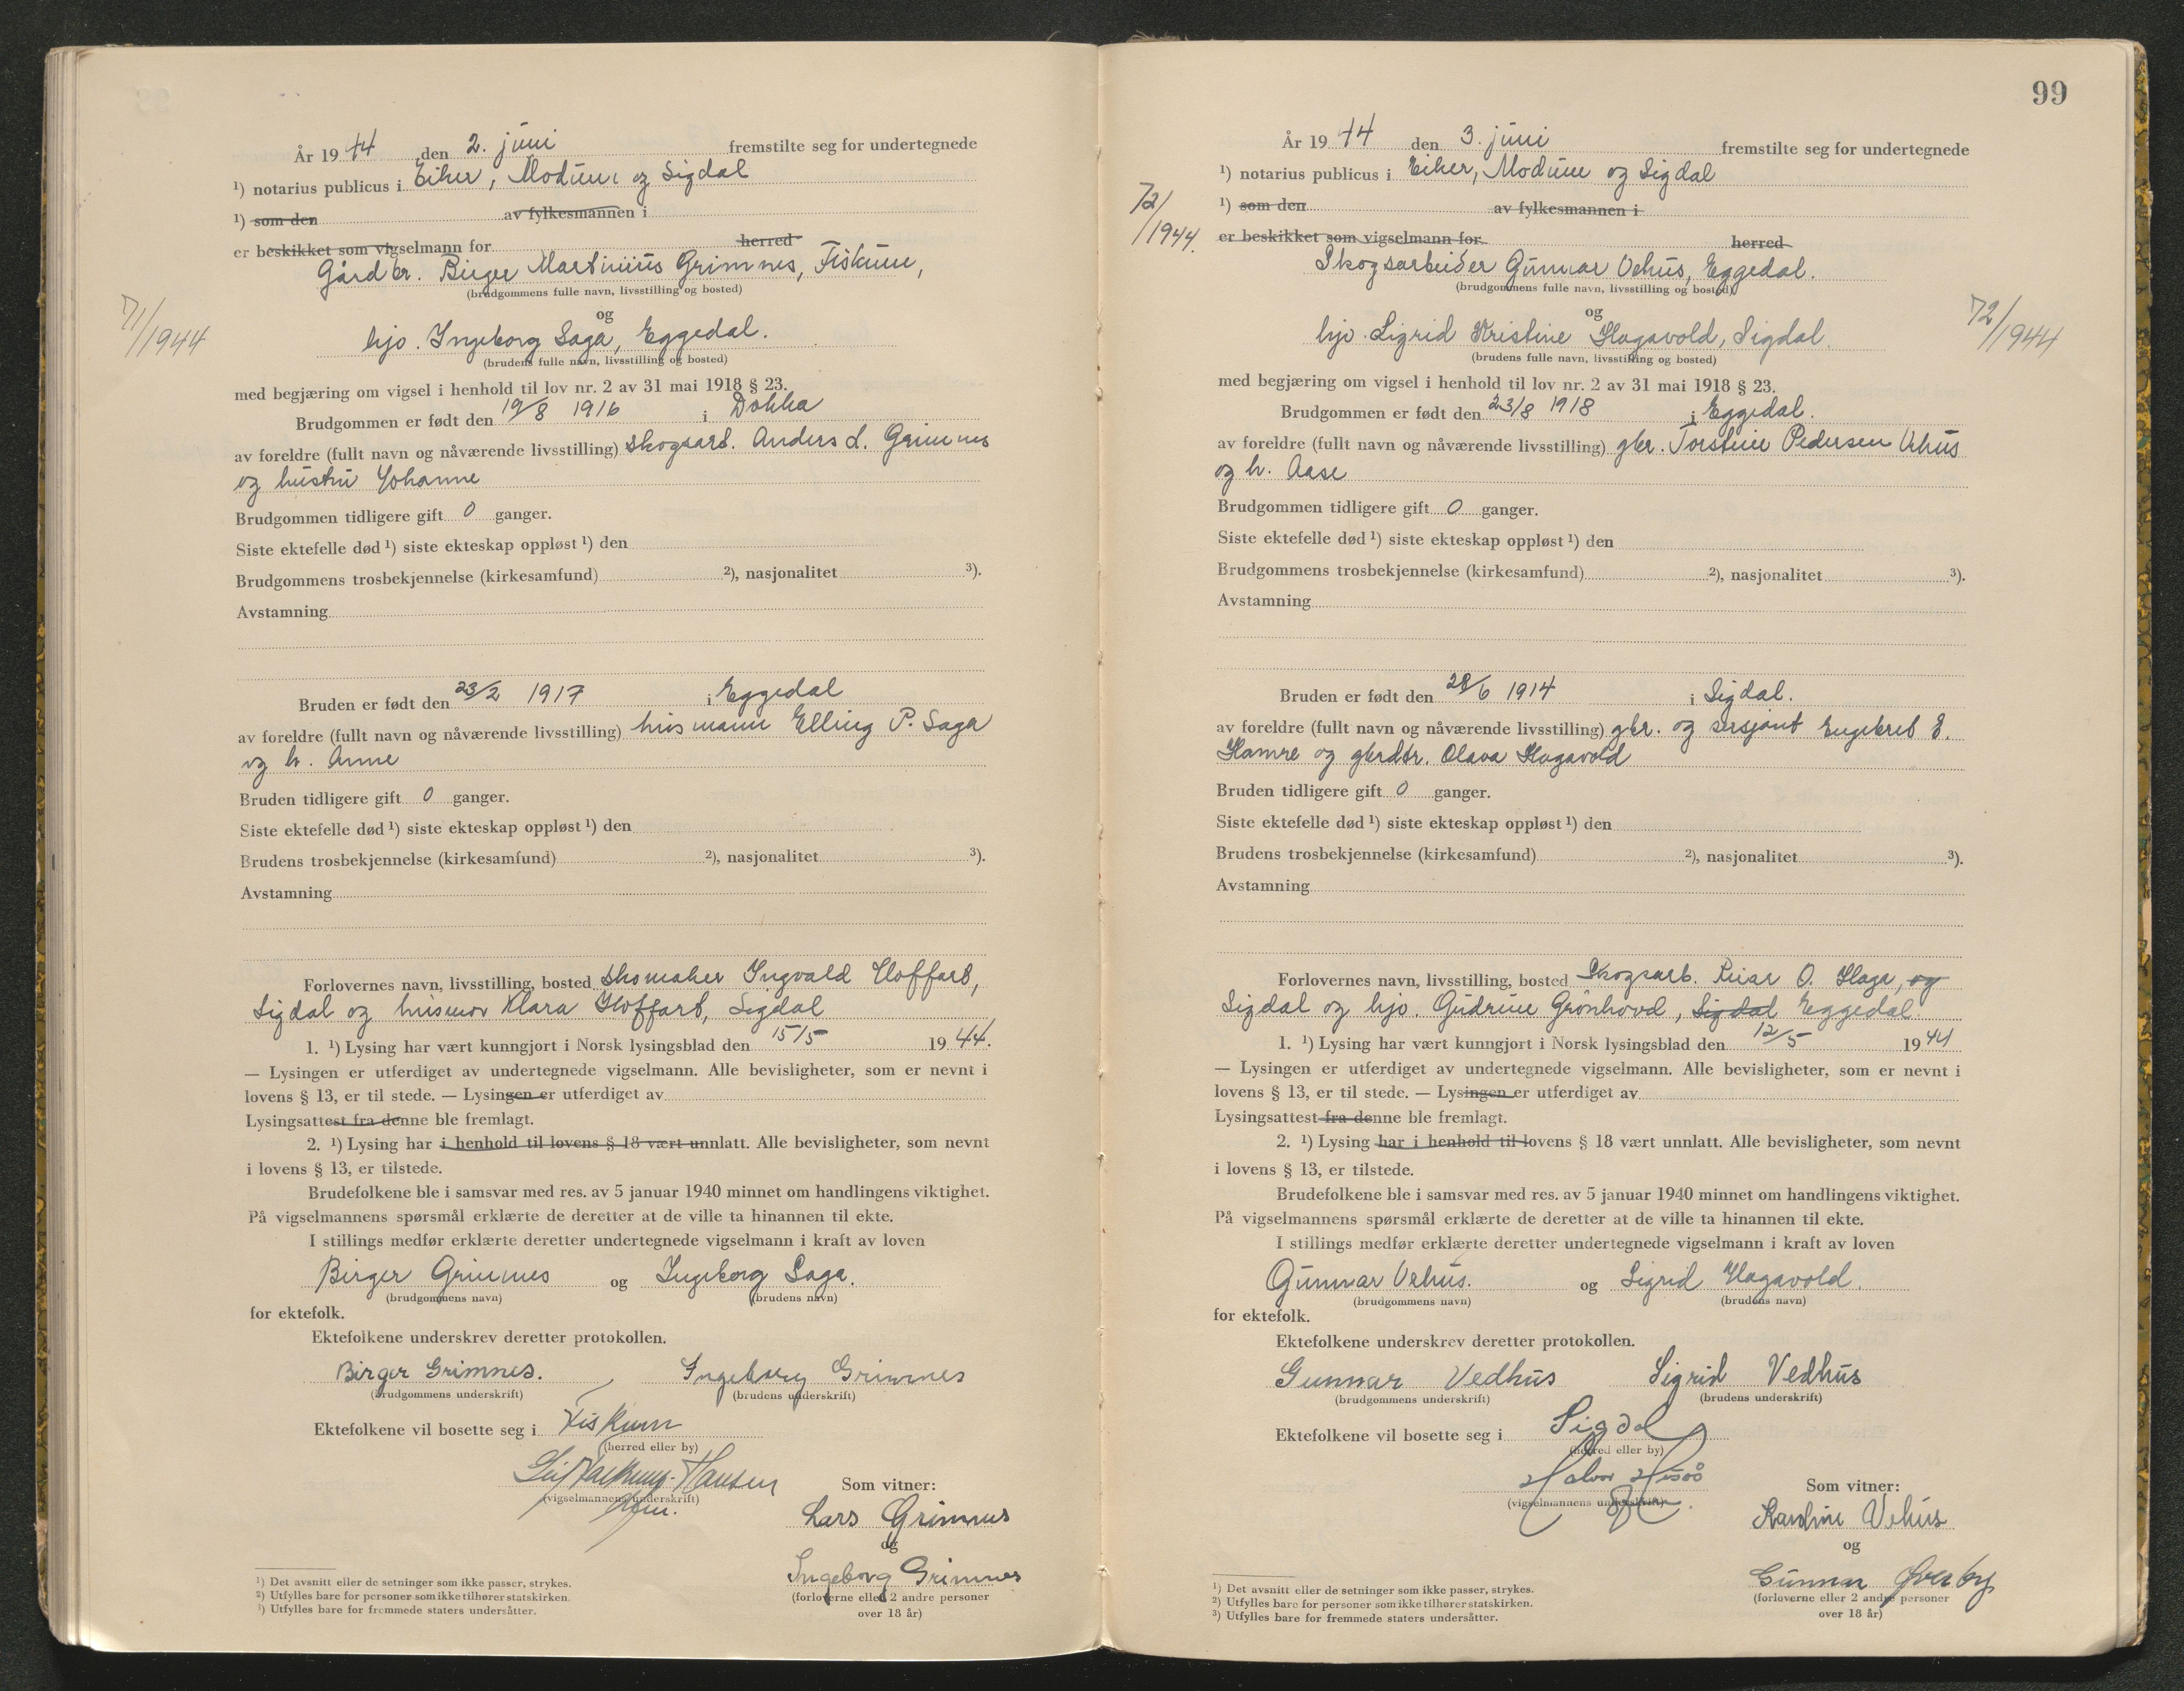 År 19 44 den 2. juni fremstilte seg for undertegnede
¹) notarius publicus i Eiker, Modum og Sigdal
¹) som den av fylkesmannen i
er beskikket som vigselmann for herred
Gårdbr. Birger Martinius Grimnes, Fiskum,
(brudgommens fulle navn, livsstilling og bosted)
og
71/1944
hjo. Ingeborg Saga, Eggedal.
(brudens fulle navn, livsstilling og bosted)
med begjæring om vigsel i henhold til lov nr. 2 av 31 mai 1918 § 23.
Brudgommen er født den 19/8 1916 i Dokka
av foreldre (fullt navn og nåværende livsstilling) skogsarb. Anders L. Grimnes
og hustru Johanne
Brudgommen tidligere gift 0 ganger.
Siste ektefelle død ¹) siste ekteskap oppløst ¹) den
Brudgommens trosbekjennelse (kirkesamfund) ²), nasjonalitet ³).
Avstamning
Bruden er født den 23/2 1917 i Eggedal
av foreldre (fullt navn og nåværende livsstilling) husmann Elling P. Saga
og h. Anne
Bruden tidligere gift 0 ganger.
Siste ektefelle død ¹) siste ekteskap oppløst ¹) den
Brudens trosbekjennelse (kirkesamfund) ²), nasjonalitet ³).
Avstamning
Forlovernes navn, livsstilling, bosted skomaker Ingvald Hoffart,
Sigdal og husmor Klara Hoffart, Sigdal
1. ¹) Lysing har vært kunngjort i Norsk lysingsblad den 15/5 19 44.
— Lysingen er utferdiget av undertegnede vigselmann. Alle bevisligheter, som er nevnt i
lovens § 13, er til stede. — Lysingen er utferdiget av
Lysingsattest fra denne ble fremlagt.
2. ¹) Lysing har i henhold til lovens § 18 vært unnlatt. Alle bevisligheter, som nevnt
i lovens § 13, er tilstede.
Brudefolkene ble i samsvar med res. av 5 januar 1940 minnet om handlingens viktighet.
På vigselmannens spørsmål erklærte de deretter at de ville ta hinannen til ekte.
I stillings medfør erklærte deretter undertegnede vigselmann i kraft av loven
Birger Grimnes og Ingeborg Saga.
(brudgommens navn) (brudens navn)
for ektefolk.
Ektefolkene underskrev deretter protokollen.
Birger Grimnes. Ingeborg Grimnes
(brudgommens underskrift) (brudens underskrift)
Ektefolkene vil bosette seg i Fiskum
(herred eller by)
Hansen
(vigselmannens underskrift)
Som vitner:
Lars Grimnes
og
Ingeborg Grimnes
(forloverne eller 2 andre personer
over 18 år)
¹) Det avsnitt eller de setninger som ikke passer, strykes.
²) Utfylles bare for personer som ikke tilhører statskirken.
³) Utfylles bare for fremmede staters undersåtter.
99
År 19 44 den 3. juni fremstilte seg for undertegnede
¹) notarius publicus i Eiker, Modum og Sigdal
72/1944.
¹) som den av fylkesmannen i
er beskikket som vigselmann for herred
Skogsarbeider Gunnar Vehus, Eggedal.
(brudgommens fulle navn, livsstilling og bosted)
og
72/1944
hjo. Sigrid Kristine Hagavold, Sigdal.
(brudens fulle navn, livsstilling og bosted)
med begjæring om vigsel i henhold til lov nr. 2 av 31 mai 1918 § 23.
Brudgommen er født den 23/8 1918 i Eggedal.
av foreldre (fullt navn og nåværende livsstilling) gbr. Torstein Pedersen Vehus
og h. Aase
Brudgommen tidligere gift 0 ganger.
Siste ektefelle død ¹) siste ekteskap oppløst ¹) den
Brudgommens trosbekjennelse (kirkesamfund) ²), nasjonalitet ³).
Avstamning
Bruden er født den 28/6 1914 i Sigdal.
av foreldre (fullt navn og nåværende livsstilling) gbr. og sersjant Engebret E.
Hamre og gbrdtr. Olava Hagavold
Bruden tidligere gift 0 ganger.
Siste ektefelle død ¹) siste ekteskap oppløst ¹) den
Brudens trosbekjennelse (kirkesamfund) ²), nasjonalitet ³).
Avstamning
Forlovernes navn, livsstilling, bosted Skogsarb. Einar O. Haga, og
Sigdal og hjo. Gudrun Grönhovd, Sigdal Eggedal.
1. ¹) Lysing har vært kunngjort i Norsk lysingsblad den 12/5 19 44
— Lysingen er utferdiget av undertegnede vigselmann. Alle bevisligheter, som er nevnt i
lovens § 13, er til stede. — Lysingen er utferdiget av
Lysingsattest fra denne ble fremlagt.
2. ¹) Lysing har i henhold til lovens § 18 vært unnlatt. Alle bevisligheter, som nevnt
i lovens § 13, er tilstede.
Brudefolkene ble i samsvar med res. av 5 januar 1940 minnet om handlingens viktighet.
På vigselmannens spørsmål erklærte de deretter at de ville ta hinannen til ekte.
I stillings medfør erklærte deretter undertegnede vigselmann i kraft av loven
Gunnar Vehus. og Sigrid Hagavold.
(brudgommens navn) (brudens navn)
for ektefolk.
Ektefolkene underskrev deretter protokollen.
Gunnar Vedhus Sigrid Vedhus
(brudgommens underskrift) (brudens underskrift)
Ektefolkene vil bosette seg i Sigdal
(herred eller by)
Halvor
(vigselmannens underskrift)
Som vitner:
Karoline Vehus
og
Gunnar Øverby
(forloverne eller 2 andre personer
over 18 år)
¹) Det avsnitt eller de setninger som ikke passer, strykes.
²) Utfylles bare for personer som ikke tilhører statskirken.
³) Utfylles bare for fremmede staters undersåtter.